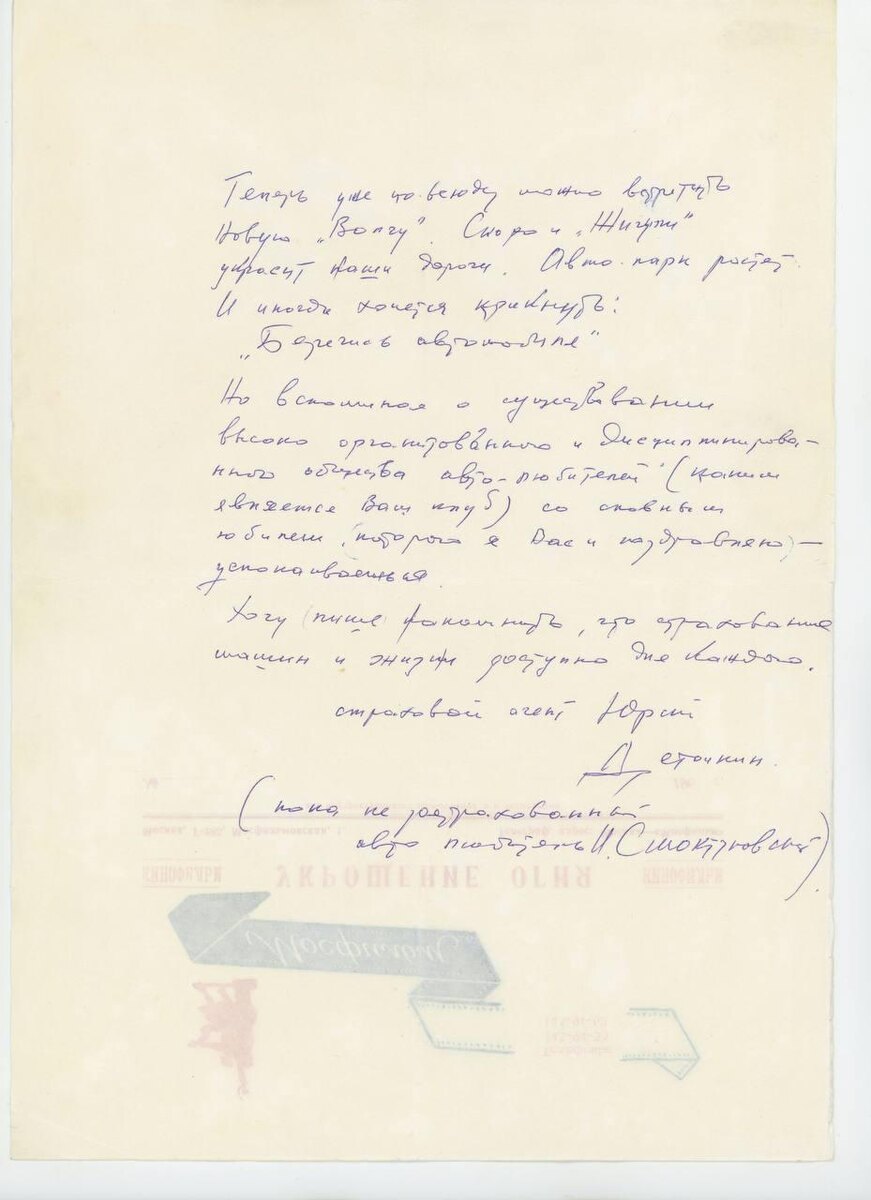 Теперь уже по всюду можно встретить
новую „Волгу". Скоро и „Жигули"
украсят наши дороги. Авто-парк растет.
И иногда хочется крикнуть:
„Берегись автомобиля"
Но вспоминая о существовании
высоко организованного и дисциплинирова-
нного общества авто-любителей (каким
является Ваш клуб) со славным
юбилеем (которого я Вас и поздравляю) –
успокаиваешься.
Хочу лишь напомнить, что страхование
машин и жизни доступно для каждого.
страховой агент Юрий
Деточкин.
(пока не застрахованный
авто любитель И. Смоктуновский).
УКРОЩЕНИЕ ОГНЯ
Мосфильм